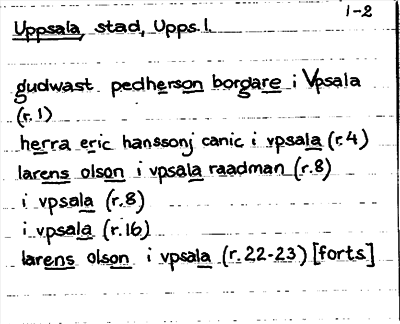 1-2
Uppsala, stad, Upps.l.
gudwast pedherson borgare i Vpsala
(r.1)
herra eric hanssonj canic i vpsala (r.4)
larens olson i vpsala raadman (r.8)
i vpsala (r.8)
i vpsala (r.16)
larens olson i vpsala (r.22-23) [forts]